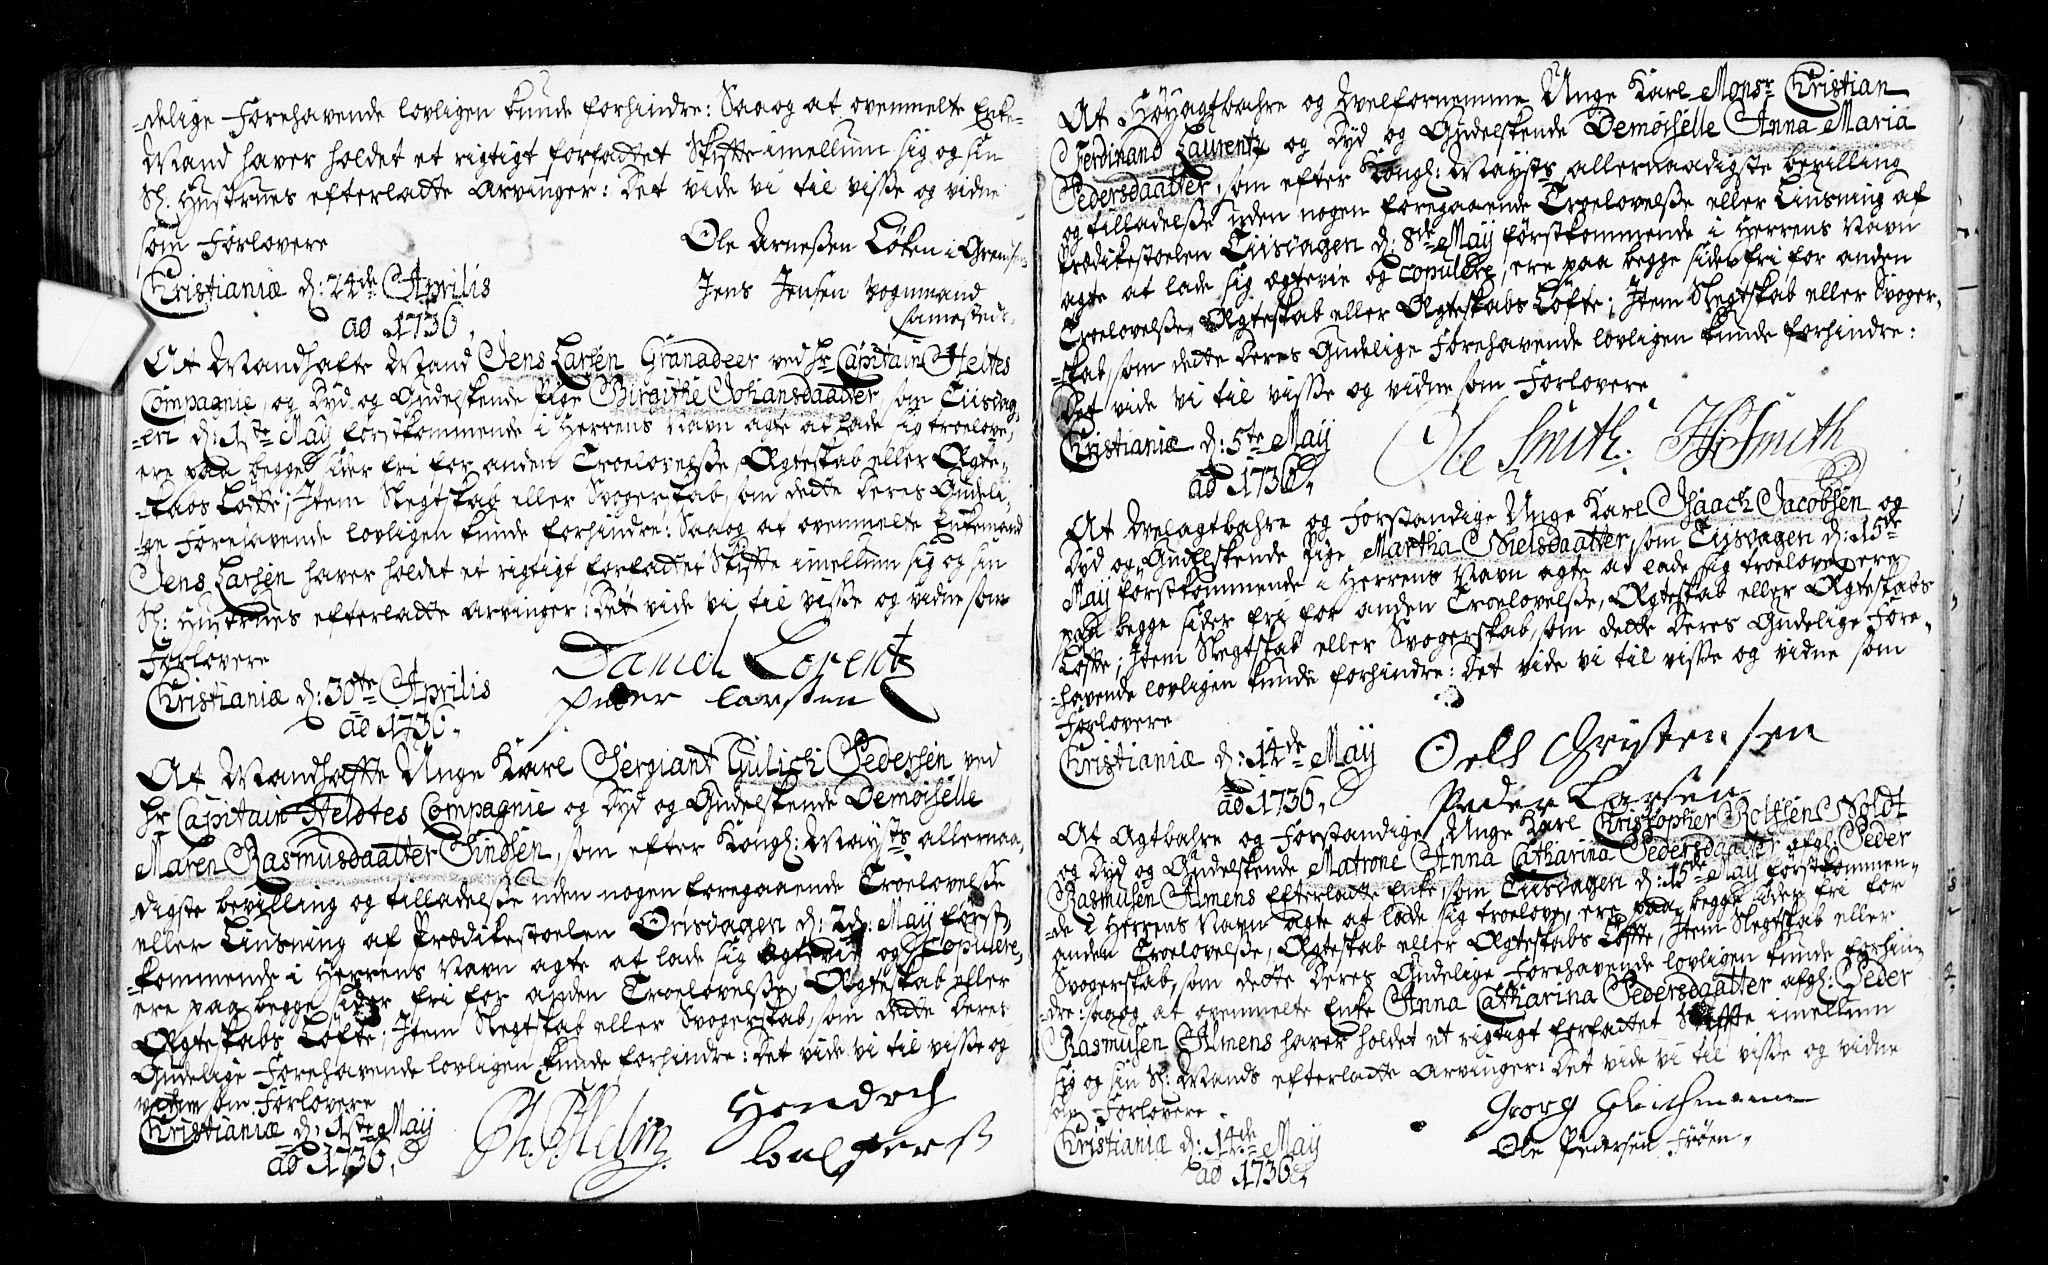 -delige Forehavende lovligen kunde forhindre: Saa og at ovenmelte Enke-
Mand haver holdet et rigtigt forfattet Skifte imellum sig og sin
Sl: Hustrues efterladte Arvinger: Det vide vi til visse og vidne
som Forlovere
Ole Arnessen Löken i Grensen
Christianiæ d: 24de Aprilis
Jens Jensen vognmand
aõ 1736.
samestedt.
At Mandhafte Mand Jens Larsen Granadeer ved Hr Capitain Heltes
Compagnie, og Dyd og Gudelskende Pige Birgithe Johansdaatter, som Tiisdag-
-en d: 1ste May förstkommende i Herrens Navn agte at lade sig troelove,
ere paa begge sider fri for anden Troelovelsse, Ægteskab eller Ægte-
-skabs Löfte; Item Slegtskab eller Svogerskab, som dette Deres Gudeli-
-ge Forehavende lovligen kunde forhindre: Saa og at ovenmelte Enkemand
Jens Larsen haver holdet et rigtigt forfattet Skifte imellum sig og sin
Sl: Hustrues efterladte Arvinger: Det vide vi til visse og vidne som
Forlovere
Daniel Lorentz
Christianiæ d: 30te Aprilis
Peder larssen
aõ 1736.
At Mandhafte Unge Karl Sergiant Gulich Pedersen ved
Hr Capitain Heldtes Compagnie og Dyd og Gudelskende Demoiselle
Maren Rasmusdaatter Sindsen, som efter Kongl: Mayts allernaa-
digste bevilling og tilladelsse uden nogen foregaaende Troelovelsse
eller Liusning af Prædikestoelen Onsdagen d: 2d: May först-
-kommende i Herrens Navn agte at lade sig ægtevie og copulere,
ere paa begge sider fri for anden Troelovelsse, Ægteskab eller
Ægteskabs Löfte; Item Slegtskab eller Svogerskab, som dette Deres
Gudelige Forehavende lovligen kunde forhindre: Det vide vi til visse og
vidne som Forlovere
Christianiæ d: 1ste May
Hendrch
aõ 1736.
At Höyagtbahre og Welfornemme Unge Karl Monsr Christian
Ferdinand Laurentz og Dyd og Gudelskende Demoiselle Anna Maria
Pedersdaatter, som efter Kongl: Mayts allernaadigste bevilling
og tilladelsse uden nogen foregaaende Troelovelsse eller Liusning af
Prædikestoelen Tiisdagen d: 8de May förstkommende i Herrens Navn
agte at lade sig ægtevie og copulere, ere paa begge sider fri for anden
Troelovelsse, Ægteskab eller Ægteskabs Löfte; Item Slegtskab eller Svoger-
-skab, som dette Deres Gudelige Forehavende lovligen kunde forhindre:
Det vide vi til visse og vidne som Forlovere
Christianiæ d: 5te May
Ole Smith. Smith
aõ 1736.
At Welagtbahre og Forstandige Unge Karl Isaach Jacobsen og
Dyd og Gudelskende Pige Martha Nielsdaatter, som Tiisdagen d: 15de
May förstkommende i Herrens Navn agte at lade sig troelove, ere
paa begge sider fri for anden Troelovelsse, Ægteskab eller Ægteskabs
Löfte; Item Slegtskab eller Svogerskab, som dette Deres Gudelige Fore-
-havende lovligen kunde forhindre: Det vide vi til visse og vidne som
Forlovere
Christianiæ d: 14de May
Oels Christensen
aõ 1736.
Peder Larsen
At Agtbahre og Forstandige Unge Karl Christopher Roltsen Noldt
og Dyd og Gudelskende Matrone Anna Catharina Pedersdaatter afgl: Peder
Rasmusen Almens efterladte Enke, som Tiisdagen d: 15de May förstkommen-
-de i Herrens Navn agte at lade sig troelove, ere paa begge sider fri for
anden Troelovelsse, Ægteskab eller Ægteskabs Löfte, Item Slegtskab eller
Svogerskab, som dette Deres Gudelige Forehavende lovligen kunde forhin-
-dre: saa og at ovenmelte Enke Anna Catharina Pedersdaatter afgl: Peder
Rasmusen Almens haver holdet et rigtigt forfattet Skifte imellum
sig og sin Sl: Mands efterladte Arvinger: Det vide vi til visse og vidne
som Forlovere
Georg
Christianiæ d: 14de May
Ole Pedersen Fröen
aõ 1736.